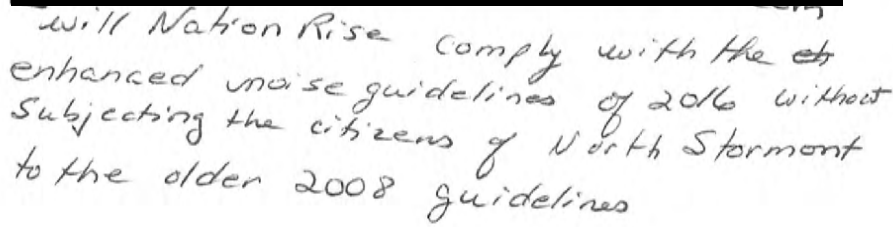 will Nation Rise comply with the
enhanced noise guidelines of 2016 without
Subjecting the citizens of North Stormont
to the older 2008 guidelines